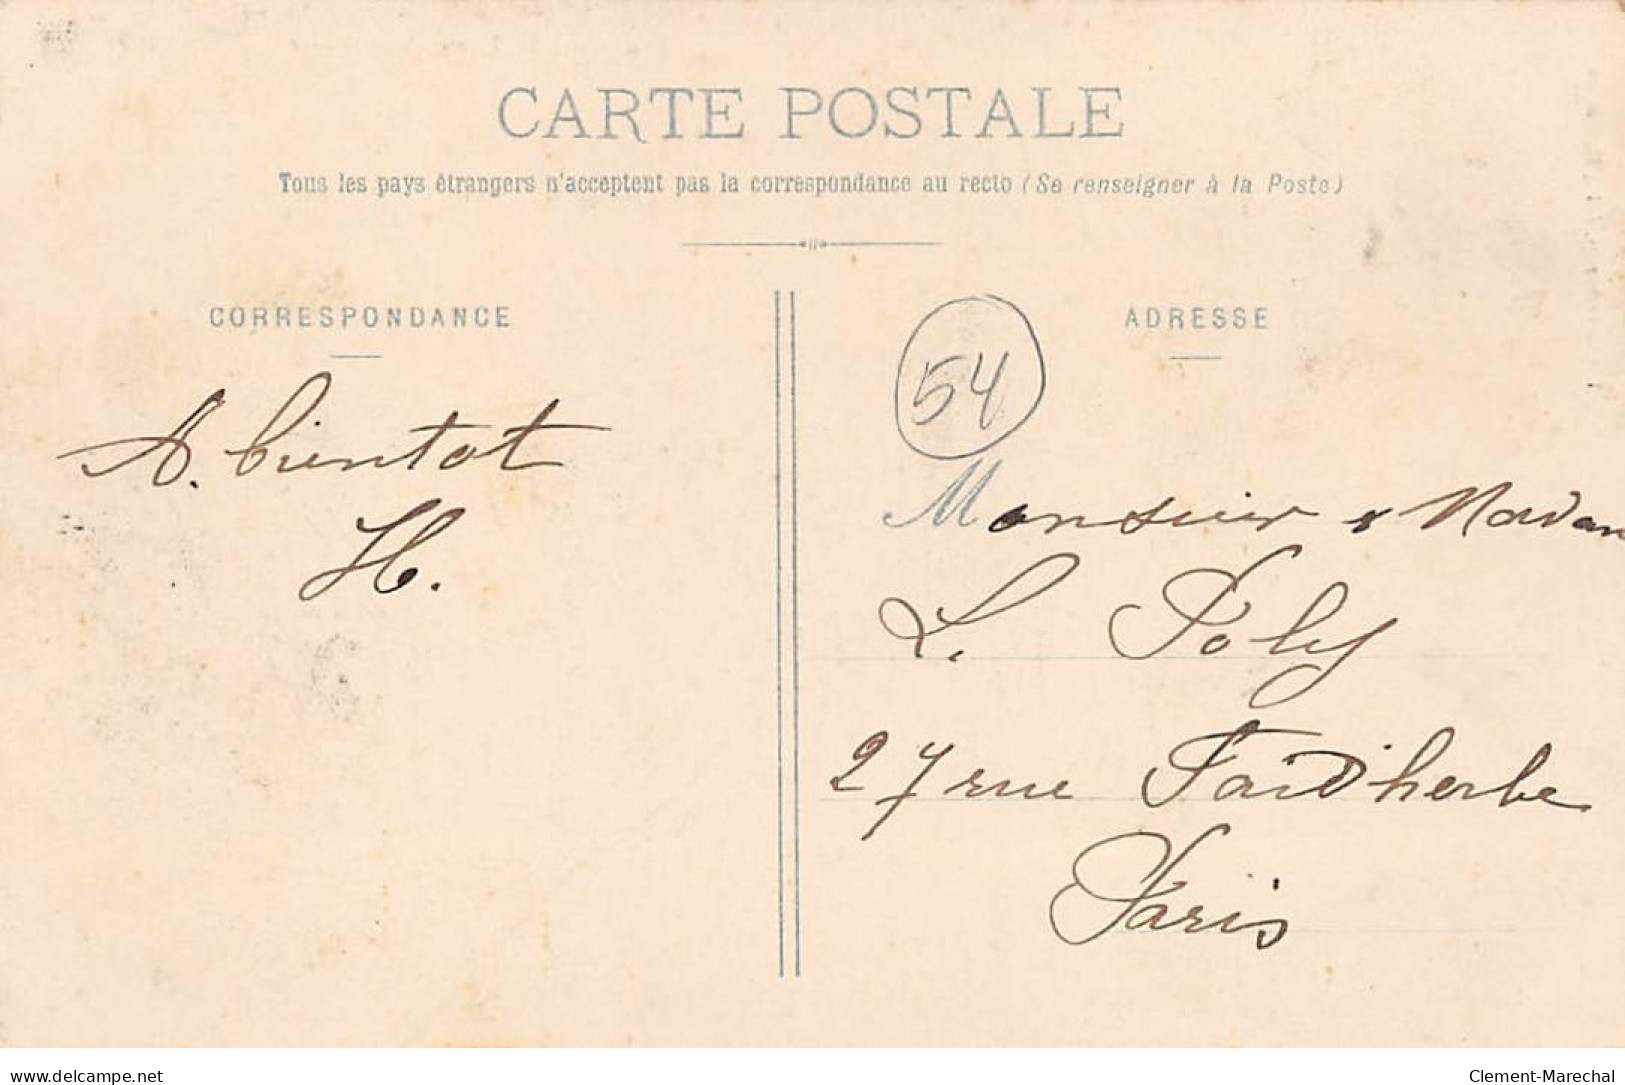 CARTE POSTALE
Tous les pays étrangers n'acceptent pas la correspondance au recto (Se renseigner à la Poste)
CORRESPONDANCE
ADRESSE
54
A. bientot
H.
Monsieur & Madam
L. Poly
27 rue Faidherbe
Paris
delcampe.net
Clement-Marechal